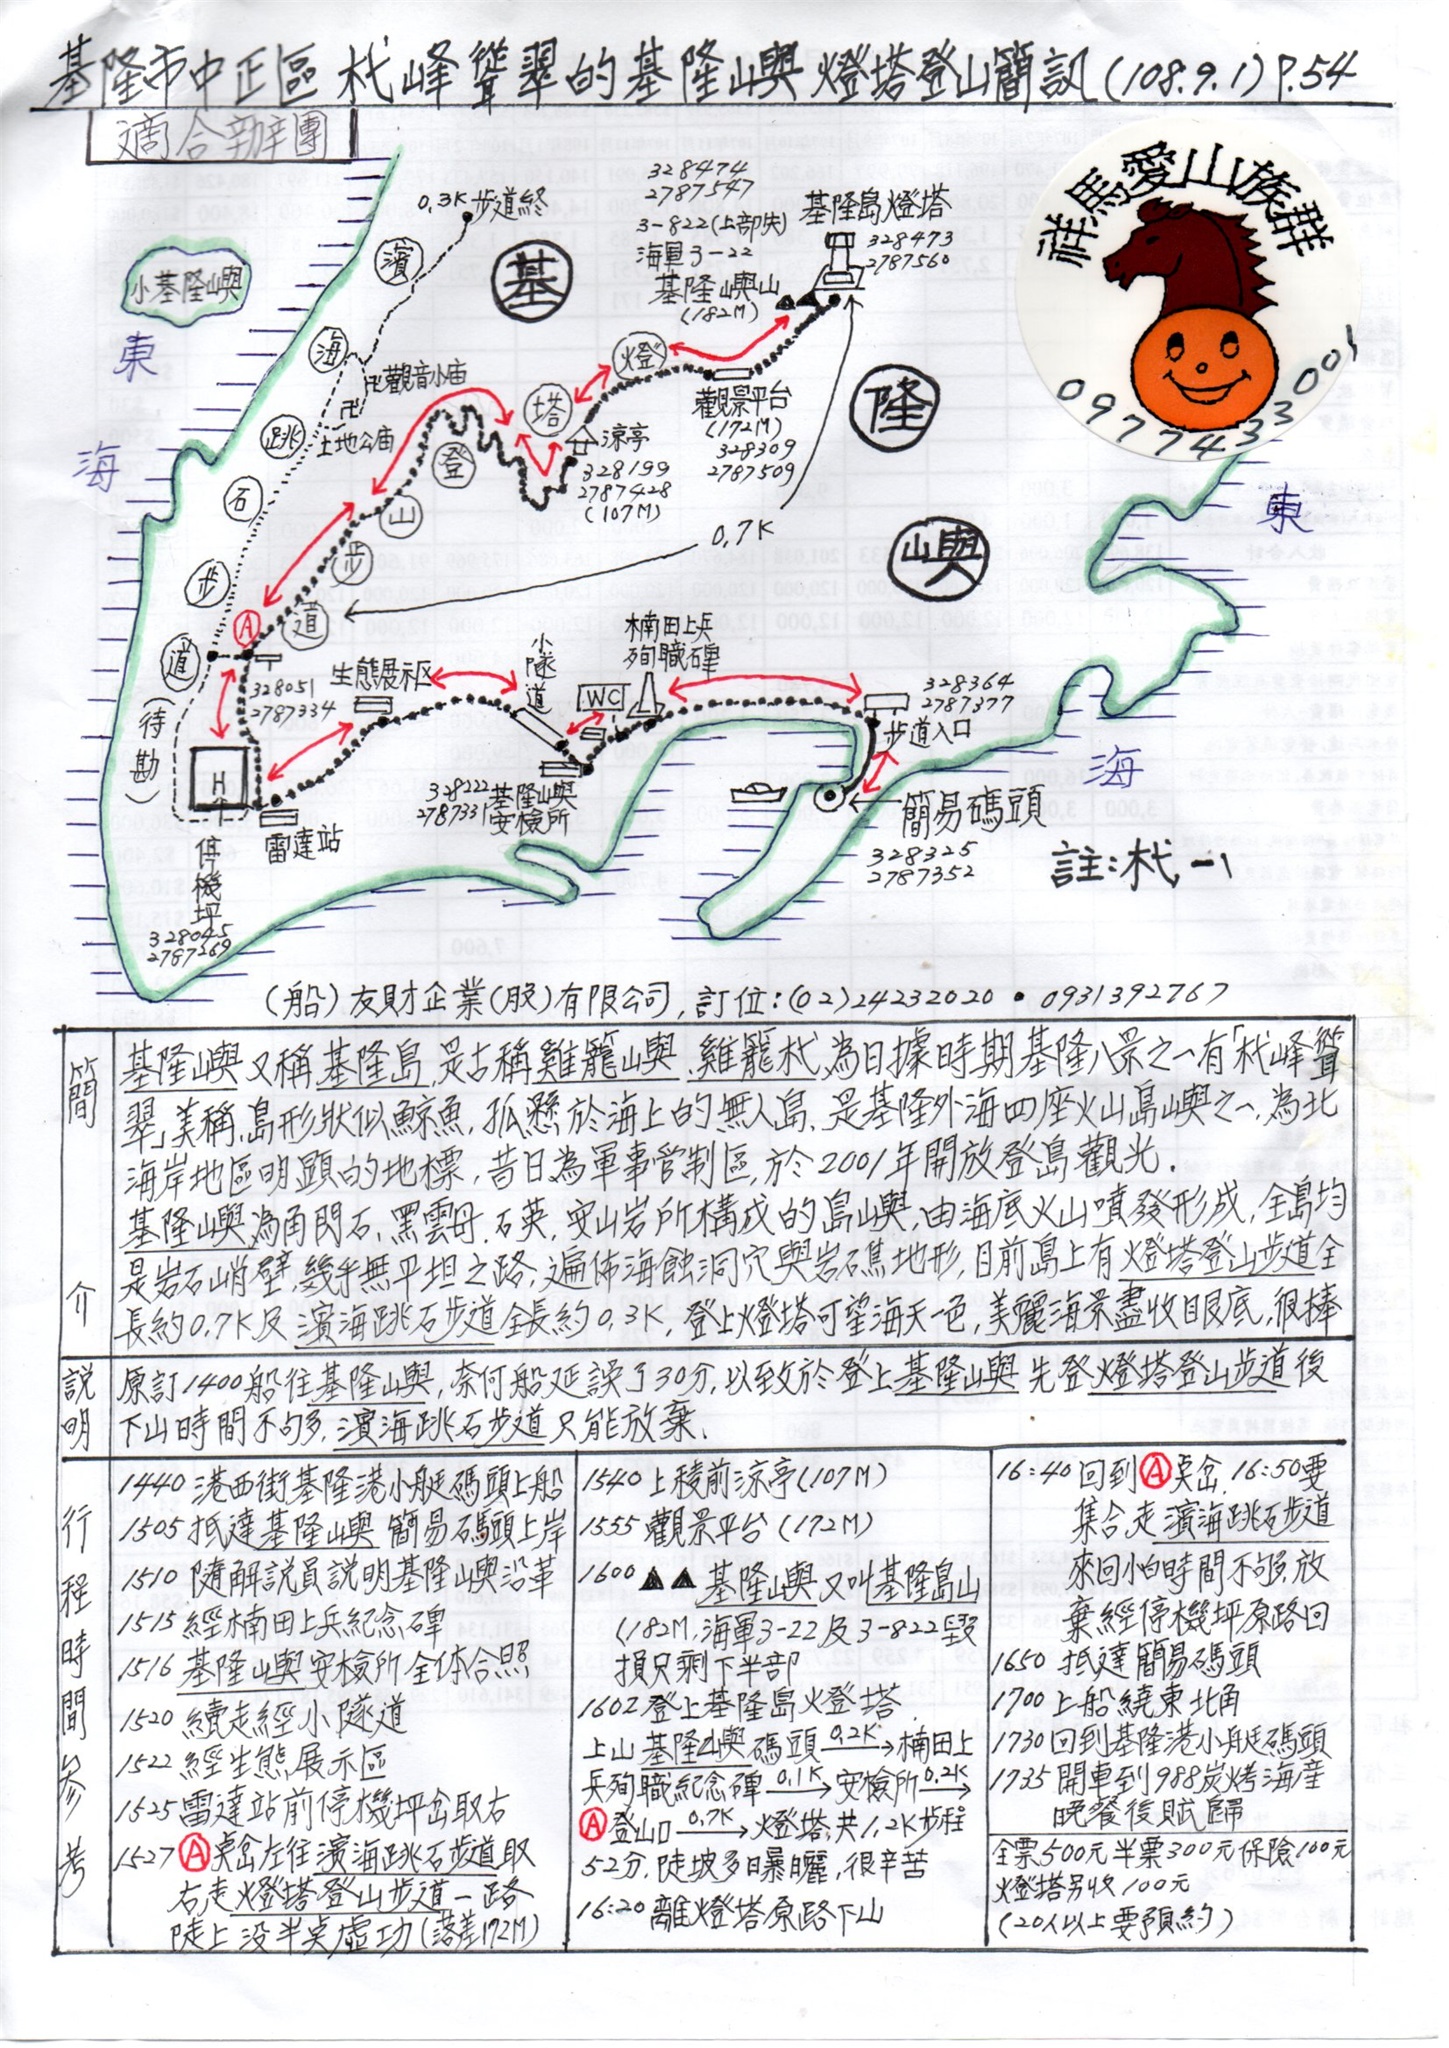 基隆市中正區杙峰聳翠的基隆嶼燈塔登山簡訊(108.9.1)P.54
適合辦團
祥馬愛山族群
0977433001
328474
2787547
0.3K步道終
3-822(上部失)
海軍3-22
基隆嶼山
(182M)
基隆島燈塔
328473
2787560
小基隆嶼
東
海
基
隆
嶼
濱
海
跳
石
步
道
(待勘)
卍觀音小庙
卍
土地公庙
燈
塔
登
山
步
道
涼亭
328199
2787428
(107M)
觀景平台
(172M)
328309
2787509
0.7K
東
海
A
328051
2787334
生態展示区
小隧道
WC
楠田上兵
殉職碑
328364
2787377
步道入口
H
停機坪
328045
2787269
雷達站
328222
2787331
基隆嶼
安檢所
簡易碼頭
328325
2787352
註:杙-ㄧˋ
(船)友財企業(股)有限公司,訂位:(02)24232020•0931392767
簡介
基隆嶼又稱基隆島,是古稱雞籠嶼.雞籠杙,為日據時期基隆八景之一有「杙峰聳
翠」美稱,島形狀似鯨魚,孤懸於海上的無人島,是基隆外海四座火山島嶼之一,為北
海岸地區明顯的地標,昔日為軍事管制區,於2001年開放登島觀光.
基隆嶼為角閃石.黑雲母.石英.安山岩所構成的島嶼,由海底火山噴發形成,全島均
是岩石峭壁,幾乎無平坦之路,遍佈海蝕洞穴與岩石礁地形,目前島上有燈塔登山步道全
長約0.7K及濱海跳石步道全長約0.3K,登上燈塔可望海天一色,美麗海景盡收眼底,很棒
說明
原訂1400船往基隆嶼,奈何船延誤了30分,以致於登上基隆嶼先登燈塔登山步道後
下山時間不夠多,濱海跳石步道只能放棄.
行程時間參考
1440港西街基隆港小艇碼頭上船
1505抵達基隆嶼簡易碼頭上岸
1510隨解說員說明基隆嶼沿革
1515經楠田上兵紀念碑
1516基隆嶼安檢所全体合照
1520續走經小隧道
1522經生態展示區
1525雷達站前停機坪岔取右
1527Ⓐ桌岔左往濱海跳石步道取
右走燈塔登山步道一路
陡上沒半桌虛功(落差172M)
1540上稜前涼亭(107M)
1555觀景平台(172M)
1600▲▲基隆嶼又叫基隆島山
(182M,海軍3-22及3-822毀
損只剩下半部
1602登上基隆島火登塔.
上山基隆嶼碼頭0.2K→楠田上
兵殉職紀念碑0.1K→安檢所0.2K→
Ⓐ登山口0.7K→燈塔,共1.2K步程
52分,陡坡多日暴曬,很辛苦
16:20離燈塔原路下山
16:40回到Ⓐ桌岔.16:50要
集合走濱海跳石步道
來回小怕時間不夠多,放
棄經停機坪原路回
1650抵達簡易碼頭
1700上船繞東北角
1730回到基隆港小艇碼頭
1735開車到988炭烤海產
晚餐後賦歸
全票500元半票300元保險100元
燈塔另收100元
(20人以上要預約)